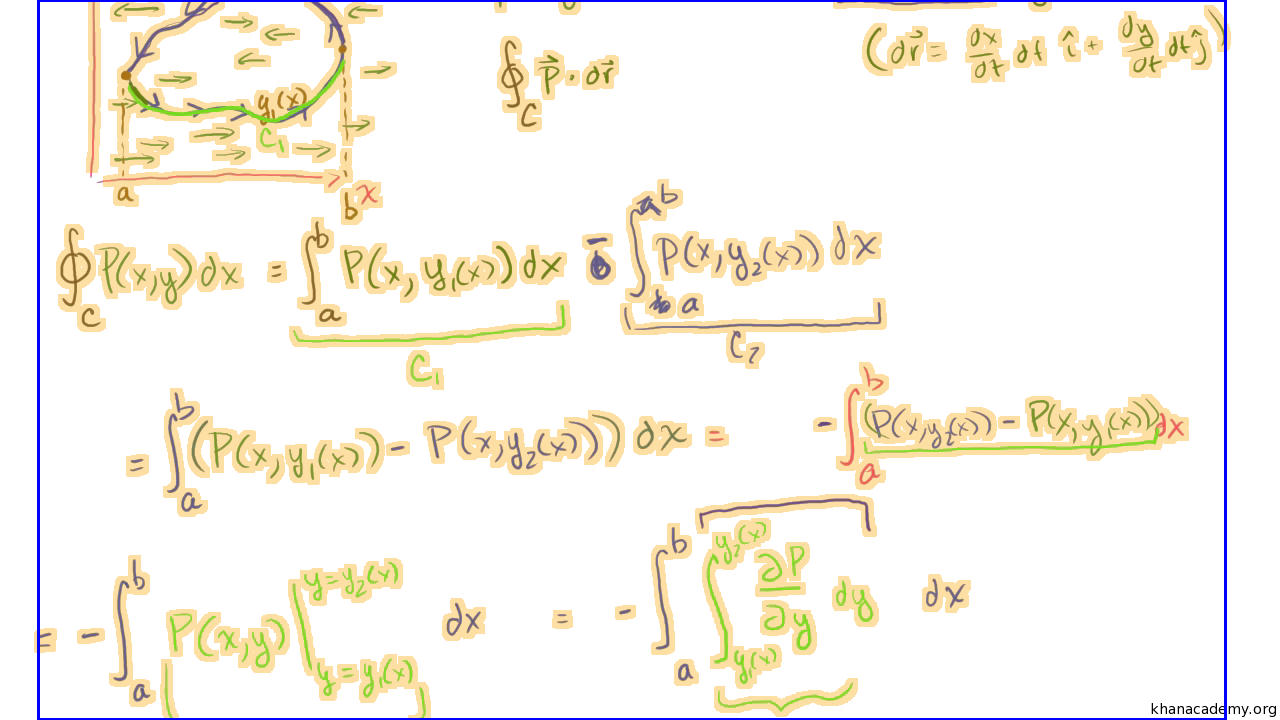 ∮_C P⃗ · dr⃗
(dr⃗ = dx/dt dt î + dy/dt dt ĵ)
y₁(x)
C₁
a
b
x
∮_C P(x,y) dx = ∫_a^b P(x, y₁(x)) dx − ∫_a^b P(x, y₂(x)) dx
C₁
C₂
= ∫_a^b (P(x, y₁(x)) − P(x, y₂(x))) dx = − ∫_a^b (P(x, y₂(x)) − P(x, y₁(x))) dx
= − ∫_a^b P(x,y) |_{y = y₁(x)}^{y = y₂(x)} dx = − ∫_a^b ∫_{y₁(x)}^{y₂(x)} ∂P/∂y dy dx
khanacademy.org